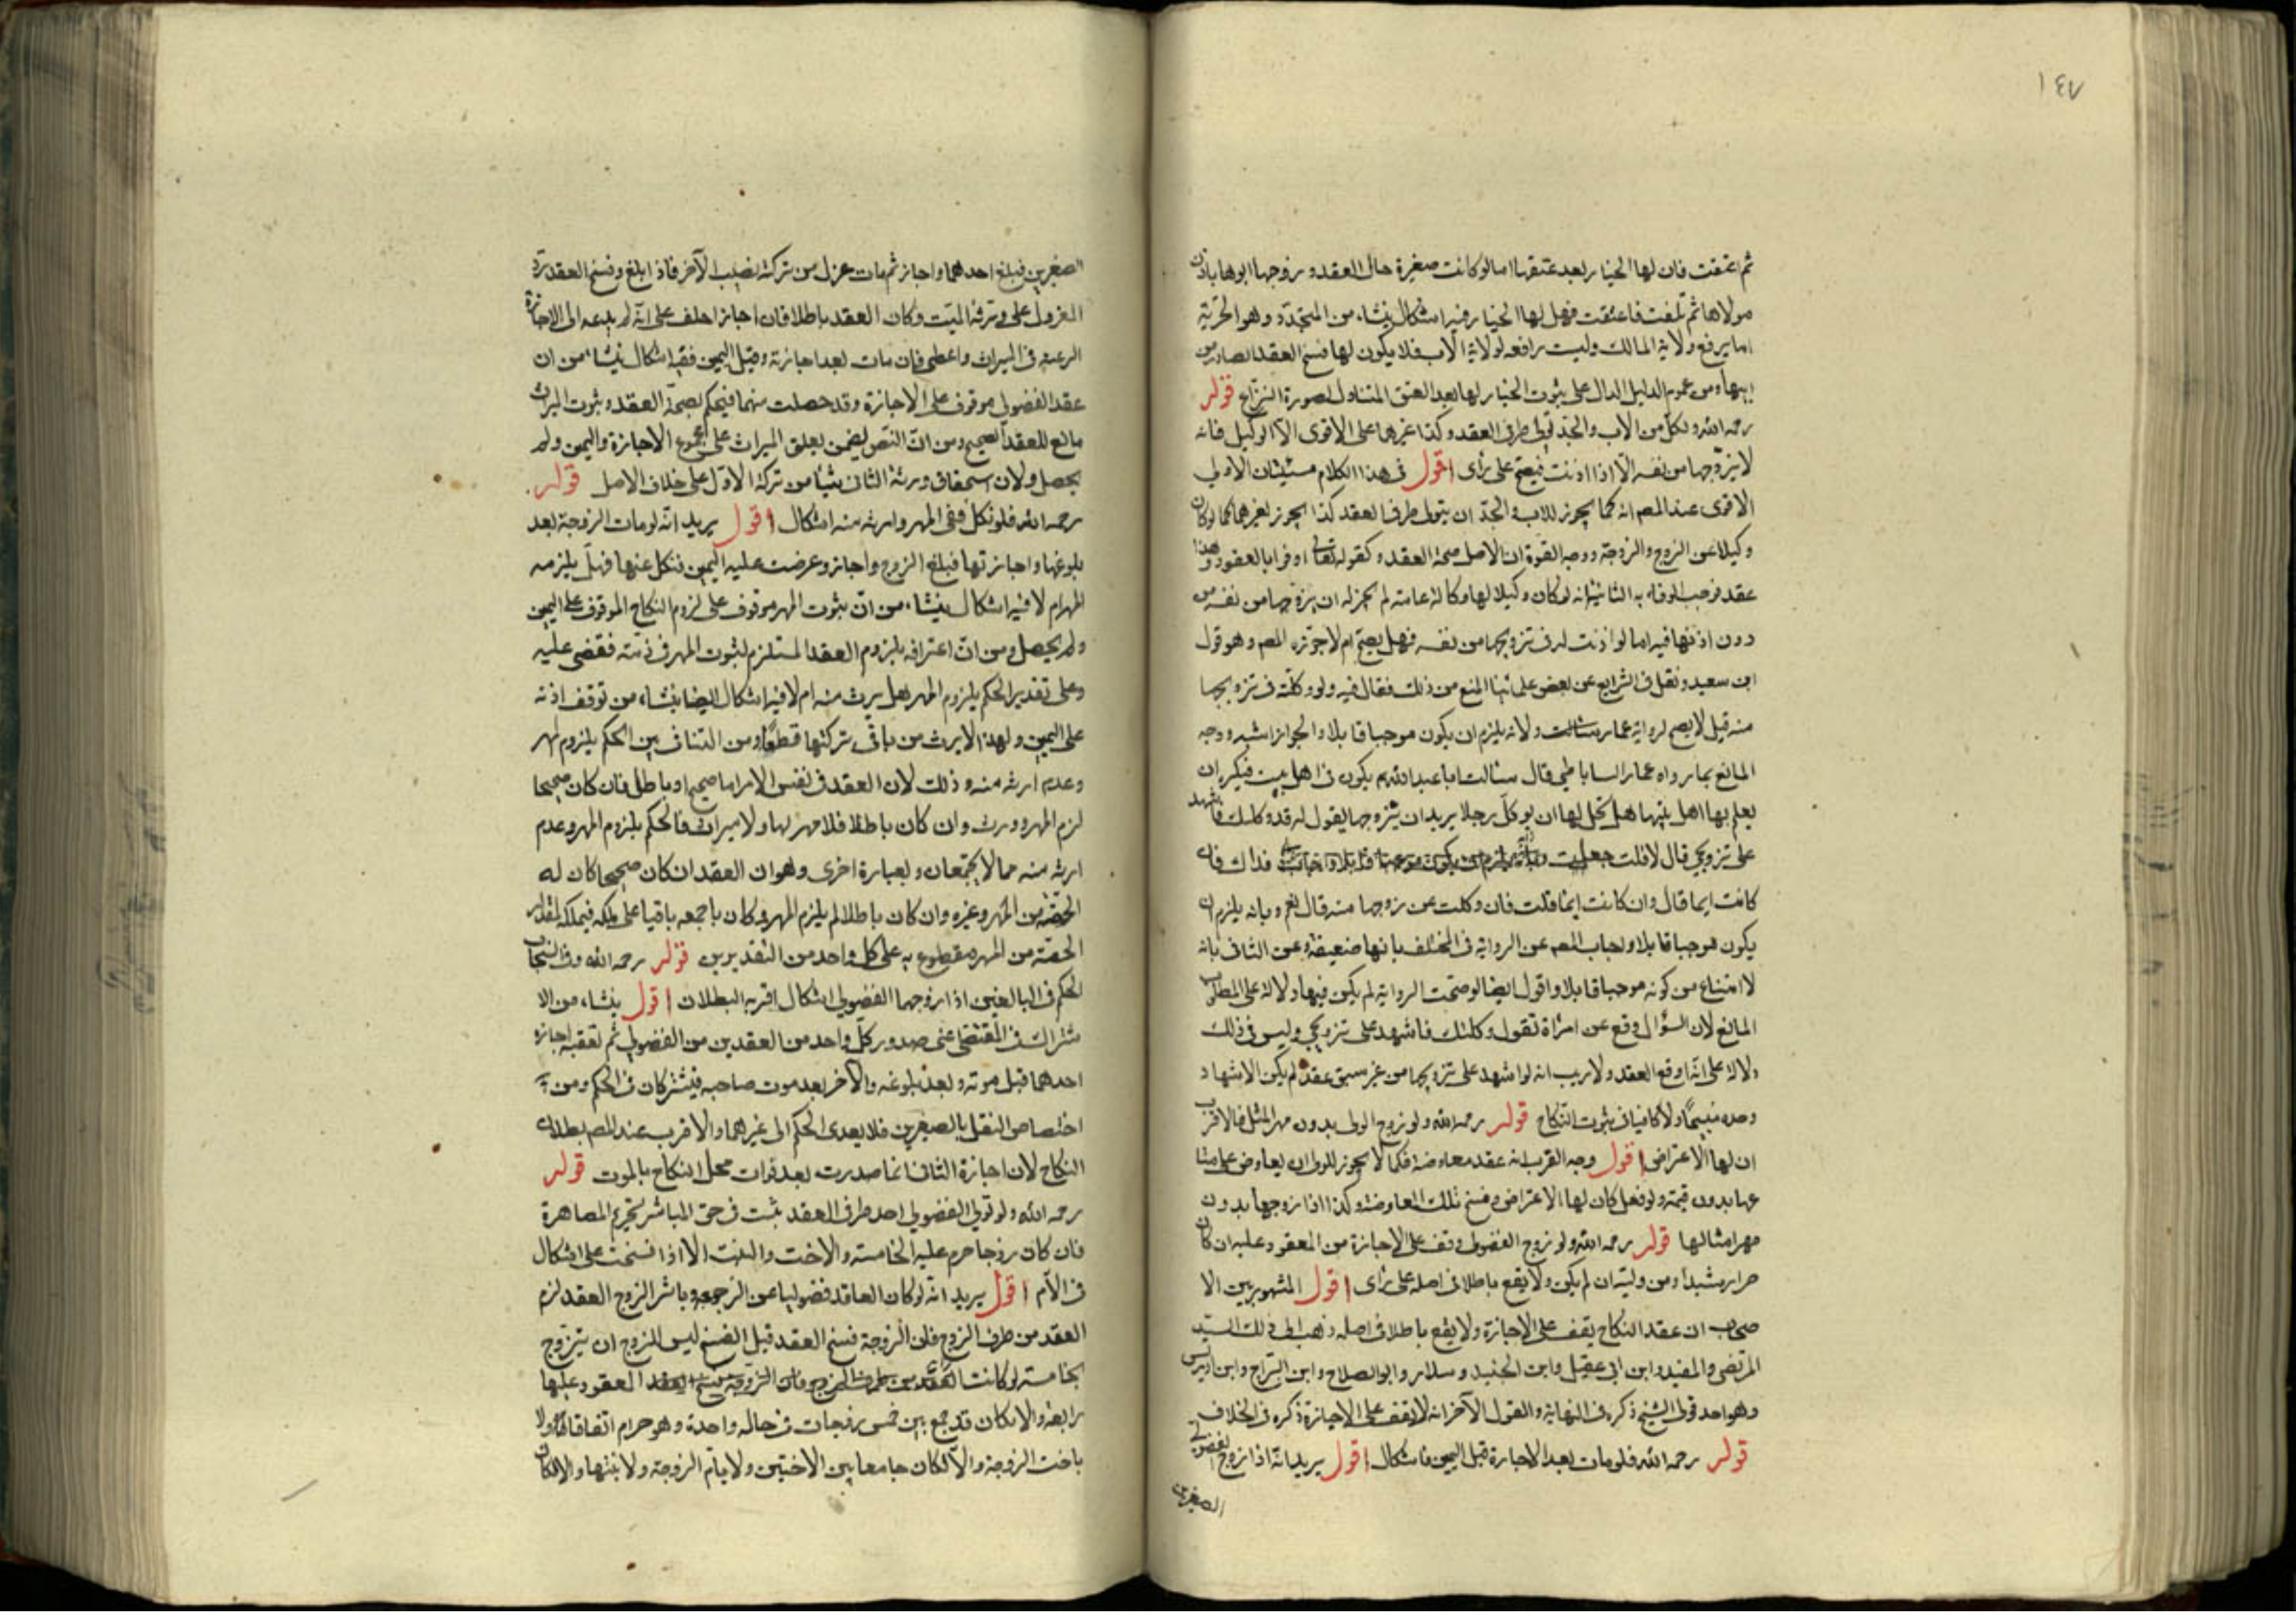 ١٤٧
ثم اعتقت فان لها الخيار بعد عتقها اما لو كانت صغيرة حال العقد وزوجها ابوها باذن
مولاها ثم بلغت فاعتقت فهل لها الخيار فيه اشكال ينشاء من المتجدد وهو الحرية
انما يرفع ولاية المالك وليست رافعه لولاية الاب فلا يكون لها فسخ العقد الصادر من
ابيها ومن عموم الدليل الدال على ثبوت الخيار لها بعد العتق المتناول لصورة النزاع قوله
رحمه الله ولكل من الاب والجد تولى طرفى العقد وكذا غيرهما على الاقوى الا الوكيل فانه
لا يزوجها من نفسه الا اذا اذنت فيصح على رأى اقول فى هذا الكلام مسئلتان الاولى
الاقوى عند المصم انه كما يجوز للاب والجد ان يتولى طرفى العقد كذا يجوز لغيرهما كما لو كان
وكيلا عن الزوج والزوجة ووجه القوة ان الاصل صحة العقد وكقوله تعالى اوفوا بالعقود وهذا
عقد فوجب الوفاء به الثانية انه لو كان وكيلا لها وكالة عامة لم يجز له ان يزوجها من نفسه من
دون اذنها فيه اما لو اذنت له فى تزويجها من نفسه فهل يصح ام لا جوزه المصم وهو قول
ابن سعيد ونقل فى الشرايع عن بعض علمائنا المنع من ذلك فقال فيه ولو وكلته فى تزويجها
منه قيل لا يصح لرواية عمار ولانه يلزم ان يكون موجبا قابلا والجواز اشبه ووجه
المانع بما رواه عمار الساباطى قال سئالت ابا عبد الله يكون فى اهل بيت فيكره ان
يعلم بها اهل بيتها هل يحل لها ان يوكل رجلا يريد ان يتزوجها يقول له قد وكلتك فاشهد
على تزويجى قال لا قلت جعلت فداك فان
كانت ايما قال وان كانت ايما قلت فان وكلت غيره بزوجها منه قال نعم وبانه يلزم ان
يكون موجبا قابلا واجاب المصم عن الرواية فى المختلف بانها ضعيفة وعن الثانى بانه
لا امتناع من كونه موجبا قابلا واقول ايضا لو صحت الرواية لم يكن فيها دلالة على المطلوب
المانع لان السؤال وقع عن امرأة تقول وكلتك فاشهد على تزويجى وليس فى ذلك
دلالة على انه اوقع العقد ولا ريب انه لو اشهد على تزويجها من غير سبق عقد لم يكن الاشهاد
وحده ولا كافيا فى ثبوت النكاح قوله رحمه الله ولو زوج الولى بدون مهر المثل فالاقرب
ان لها الاعتراض اقول وجه القرب انه عقد معاوضة فكما لا يجوز للولى ان يعاوض على متا
عها بدون قيمته ولو فعل كان لها الاعتراض وفسخ تلك المعاوضة وكذا اذا زوجها بدون
مهر امثالها قوله رحمه الله ولو زوج الفضولى وقف على الاجازة من المعقود عليه ان كان
حرا رشيدا ومن وليه ان لم يكن ولا يقع باطلا فى اصله على رأى اقول المشهور بين الا
صحاب ان عقد النكاح يقف على الاجازة ولا يقع باطلا فى اصله ذهب الى ذلك السيد
المرتضى والمفيد وابن ابى عقيل وابن الجنيد وسلار وابو الصلاح وابن البراج وابن ادريس
وهو احد قولى الشيخ ذكره فى النهاية والقول الآخر انه لا يقف على الاجازة ذكره فى الخلاف
قوله رحمه الله فلو مات بعد الاجازة قبل اليمين فاشكال اقول يريد انه اذا زوج الفضولى
الصغيرين
الصغيرين فبلغ احدهما واجاز ثم مات عزل من تركته نصيب الآخر فاذا بلغ وفسخ العقد يرد
المعزول على ورثة الميت وكان العقد باطلا فان اجاز احلف على انه لم يدعه الى الاجازة
الرغبة فى الميراث واعطى فان مات بعد اجازته وقبل اليمين ففيه اشكال ينشاء من ان
عقد الفضولى موقوف على الاجازة وقد حصلت منهما فيحكم بصحة العقد وثبوت الميراث
مانع للعقد الصحيح ومن ان النص يضمن تعلق الميراث على مجموع الاجازة واليمين ولم
يحصل ولان استحقاق ورثة الثانى شيئا من تركة الاول على خلاف الاصل قوله
رحمه الله فلو نكل ففى المهر وارثه منه اشكال اقول يريد انه لو مات الزوجة بعد
بلوغها واجازتها فبلغ الزوج واجاز وعرضت عليه اليمين فنكل عنها فهل يلزمه
المهر ام لا فيه اشكال ينشاء من ان ثبوت المهر موقوف على لزوم النكاح الموقوف على اليمين
ولم يحصل ومن ان اعترافه بلزوم العقد المستلزم لثبوت المهر فى ذمته فقضى عليه
وعلى تقدير الحكم بلزوم المهر هل يرث منه ام لا فيه اشكال ايضا ينشاء من توقف ارثه
على اليمين ولهذا لا يرث من باقى تركتها قطعا ومن التنافى بين الحكم بلزوم المهر
وعدم ارثه منه وذلك لان العقد فى نفس الامر اما صحيح او باطل فان كان صحيحا
لزم المهر وورث وان كان باطلا فلا مهر لها ولا ميراث فالحكم بلزوم المهر وعدم
ارثه منه مما لا يجتمعان وبعبارة اخرى وهو ان العقد ان كان صحيحا كان له
الحصة من المهر وغيره وان كان باطلا لم يلزم المهر فكان باجمعه باقيا على ملكه فيملكه لمقدار
الحصة من المهر مقطوع به على كل واحد من التقديرين قوله رحمه الله وفى انسحاب
الحكم فى البالغين اذا زوجهما الفضولى اشكال اقربه البطلان اقول ينشاء من الا
شتراك فى المقتضى عنى صدور كل واحد من العقدين من الفضولى ثم تعقبه اجازة
احدهما قبل موته وبعد بلوغه والآخر بعد موت صاحبه فيشتركان فى الحكم ومن
اختصاص النقل بالصغيرين فلا يعدى الحكم الى غيرهما والاقرب عند المصم بطلان
النكاح لان اجازة الثانى انما صدرت بعد فوات محل النكاح بالموت قوله
رحمه الله ولو تولى الفضولى احد طرفى العقد يثبت فى حق المباشر تحريم المصاهرة
فان كان زوجا حرم عليه الخامسة والاخت والبنت الا اذا فسخت على اشكال
فى الام اقول يريد انه لو كان العاقد فضوليا عن الزوجة وباشر الزوج العقد لزم
العقد من طرف الزوج فان الزوجة فسخ العقد قبل الفسخ ليس للزوج ان يتزوج
بخامسة لو كانت المعقود عليها
رابعة والا لكان قد جمع بين خمس زوجات فى حالة واحدة وهو حرام اتفاقا ولا
باخت الزوجة والا لكان جامعا بين الاختين ولا بام الزوجة ولا بنتها والا لكان